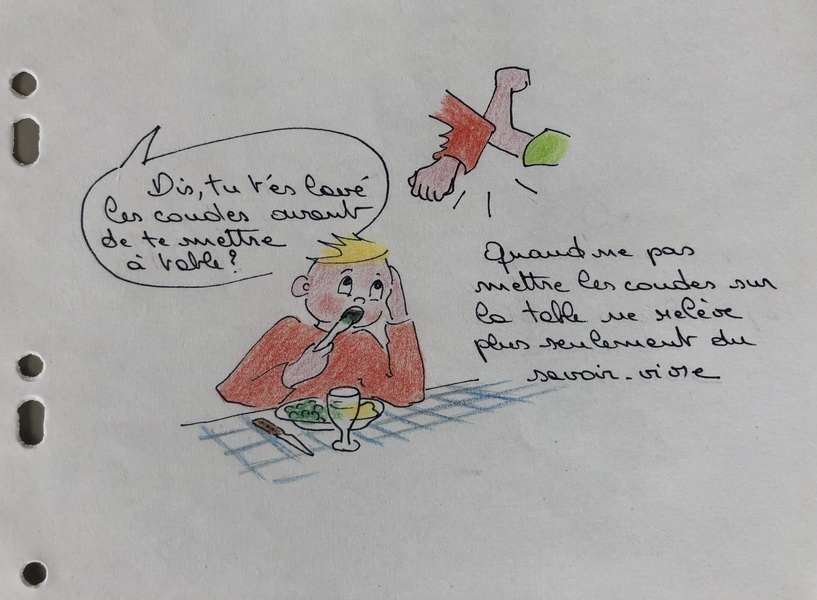 Dis, tu t'es lavé
les coudes avant
de te mettre
à table?
Quand ne pas
mettre les coudes sur
la table ne relève
plus seulement du
savoir-vivre